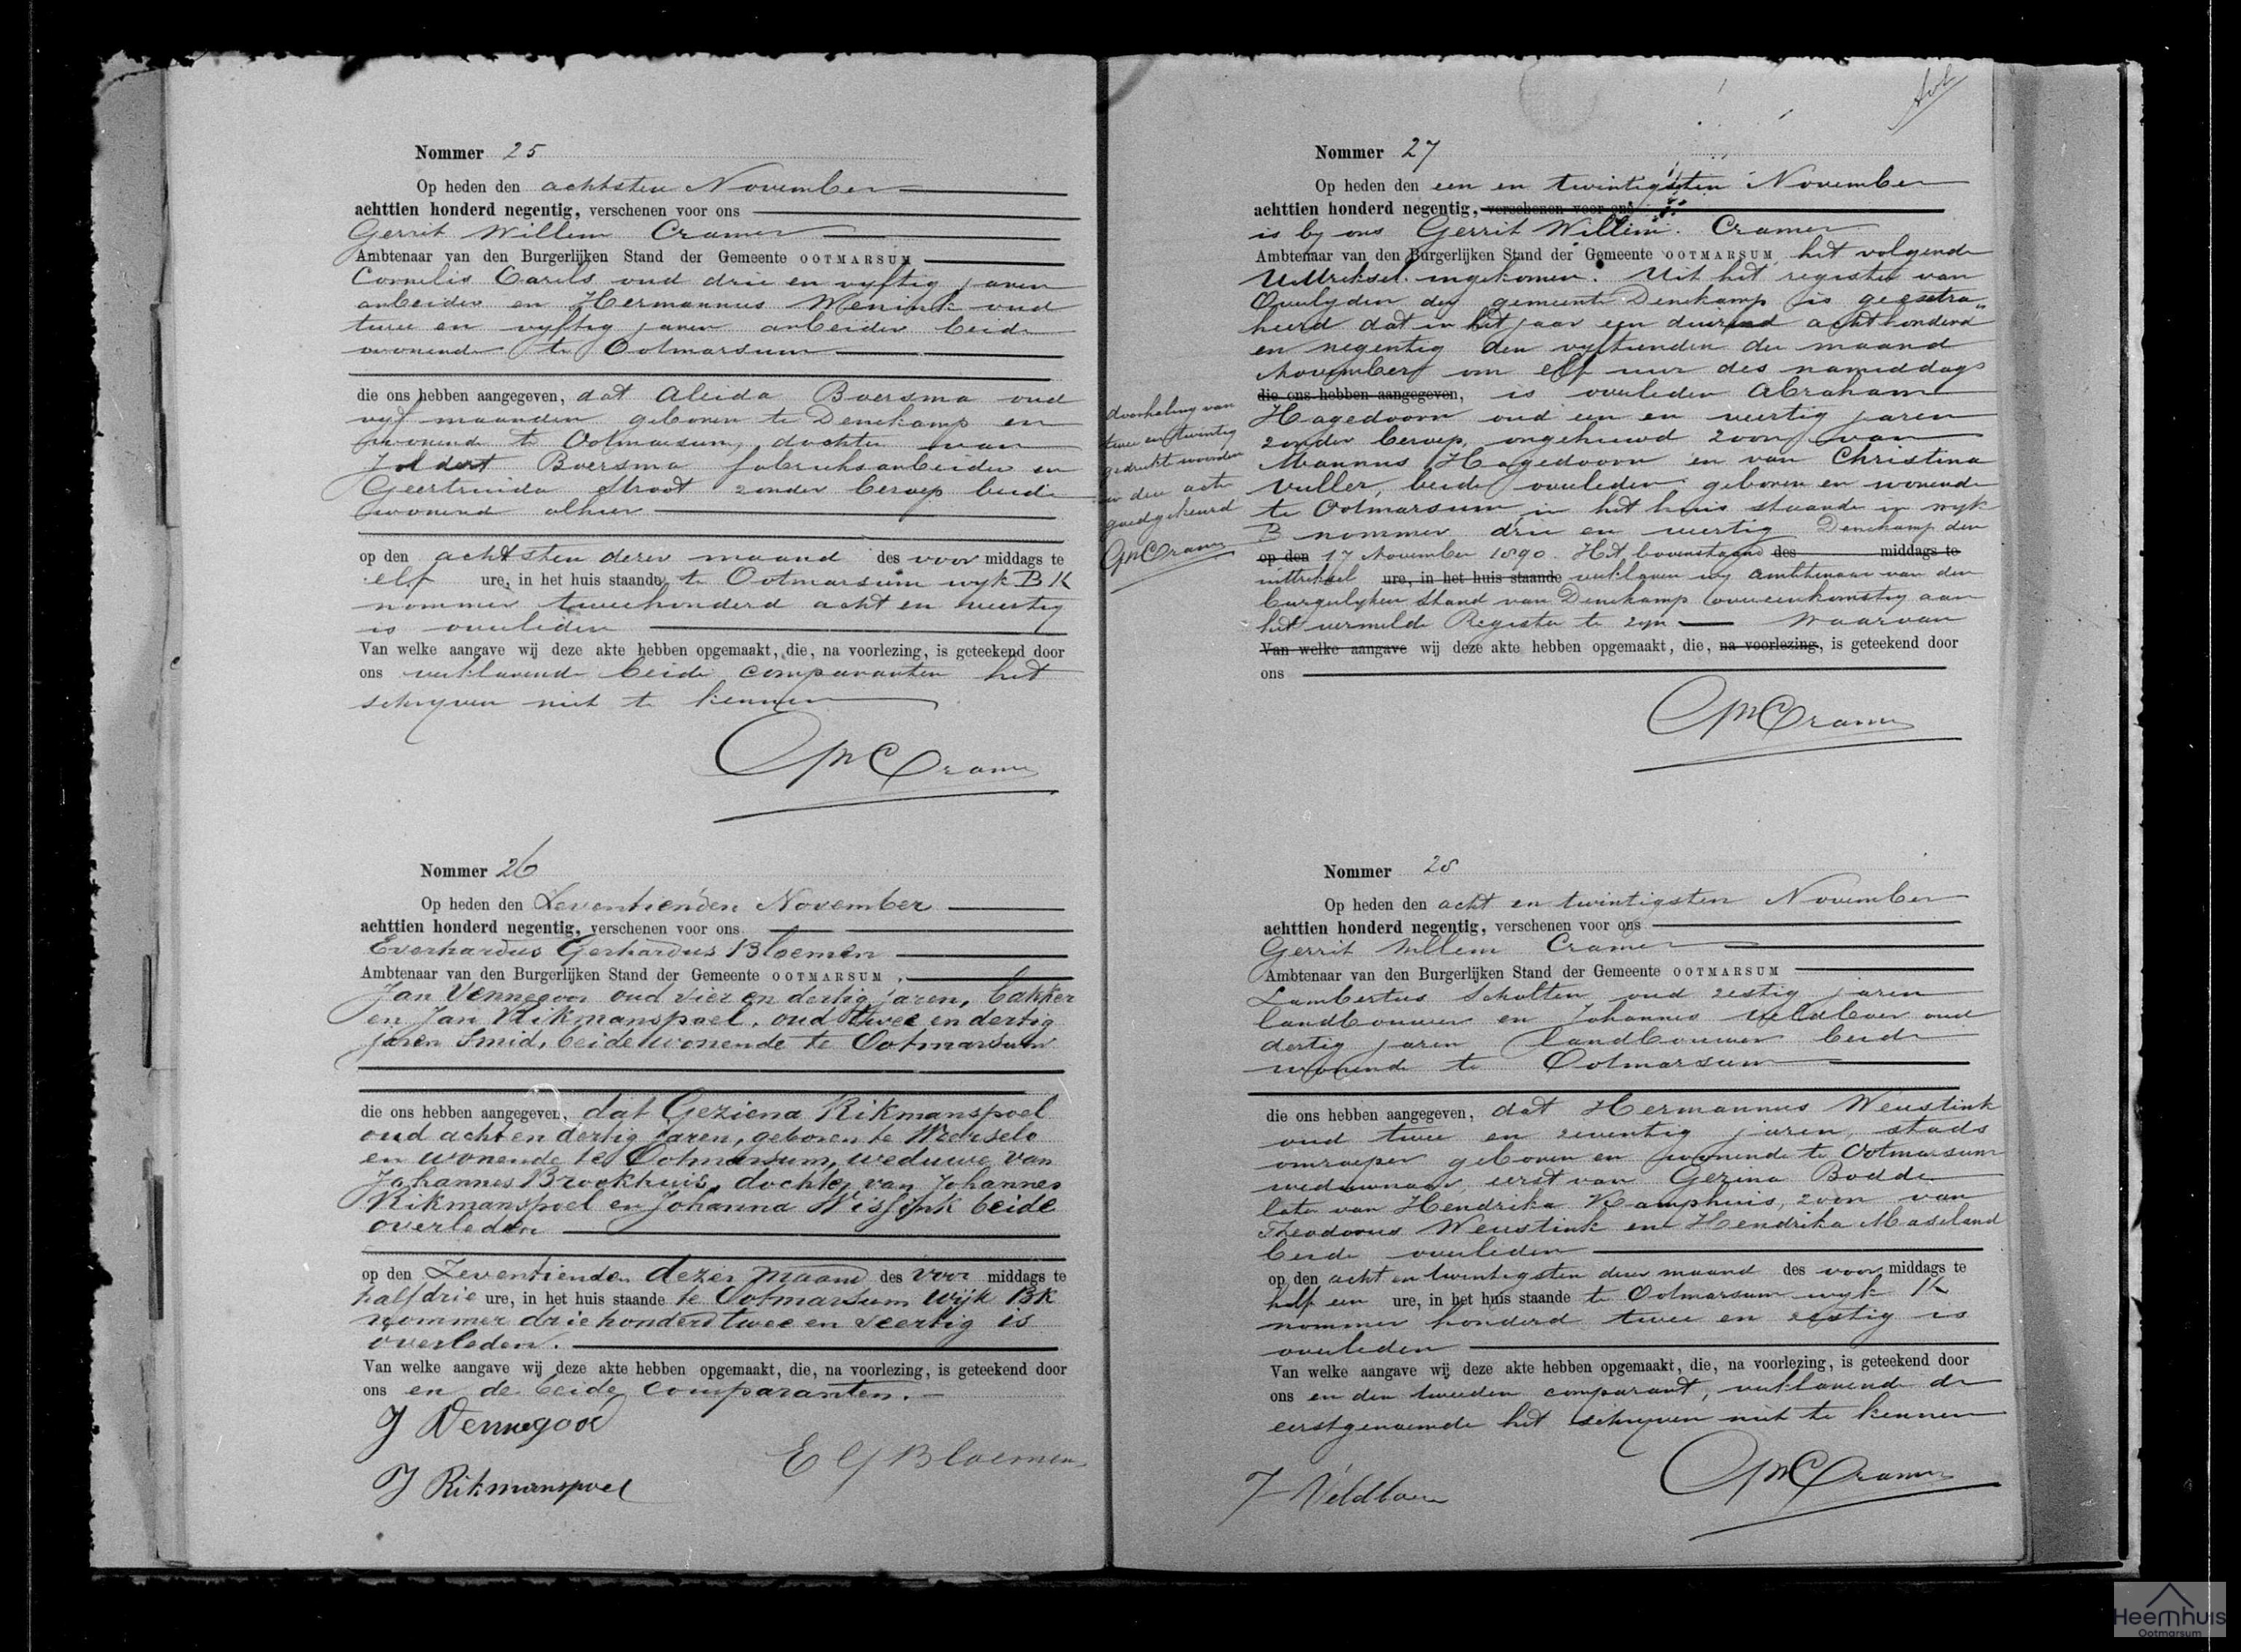 Nommer 25
Op heden den achtsten November
achttien honderd negentig, verschenen voor ons
Gerrit Willem Cramer
Ambtenaar van den Burgerlijken Stand der Gemeente OOTMARSUM
Cornelis Carels oud drie en vyftig jaren
arbeider en Hermannus Menink oud
twee en vyftig jaren arbeider beide
wonende te Ootmarsum
die ons hebben aangegeven, dat Aleida Boersma oud
vyf maanden geboren te Denekamp en
wonende te Ootmarsum, dochter van
Boersma fabrieksarbeider en
Geertruida Stroot zonder beroep beide
wonend alhier
op den achtsten dezer maand des voor middags te
elf ure, in het huis staande, te Ootmarsum wyk B K
nommer tweehonderd acht en veertig
is overleden
Van welke aangave wij deze akte hebben opgemaakt, die, na voorlezing, is geteekend door
ons verklarende beide comparanten het
schryven niet te kennen
GWCramer
Nommer 26
Op heden den Zeventienden November
achttien honderd negentig, verschenen voor ons
Everhardus Gerhardus Bloemen
Ambtenaar van den Burgerlijken Stand der Gemeente OOTMARSUM,
Jan Vennegoor oud vier en dertig jaren, bakker
en Jan Rikmanspoel, oud twee en dertig
jaren Smid, beide wonende te Ootmarsum
die ons hebben aangegeven, dat Geziena Rikmanspoel
oud acht en dertig jaren, geboren te Weerselo
en wonende te Ootmarsum, weduwe van
Johannes Brookhuis, dochter van Johannes
Rikmanspoel en Johanna Wissink beide
overleden
op den Zeventienden dezer maand des voor middags te
half drie ure, in het huis staande te Ootmarsum Wijk BK
nommer driehonderd twee en veertig is
overleden.
Van welke aangave wij deze akte hebben opgemaakt, die, na voorlezing, is geteekend door
ons en de beide comparanten.
J Vennegoor
E G Bloemen
J Rikmanspoel
Nommer 27
Op heden den een en twintigsten November
achttien honderd negentig, verschenen voor ons
is by ons Gerrit Willem Cramer
Ambtenaar van den Burgerlijken Stand der Gemeente OOTMARSUM het volgende
Uittreksel ingekomen. Uit het register van
Overlyden der gemeente Denekamp is geextra„
heerd dat in het jaar een duizend achthonderd
en negentig den vyftienden der maand
November om elf uur des namiddags
die ons hebben aangegeven, is overleden Abraham
Hagedoorn oud een en veertig jaren
zonder beroep, ongehuwd zoon van
Mannus Hagedoorn en van Christina
Vuller, beide overleden geboren en wonende
te Ootmarsum in het huis staande in wyk
B nommer drie en veertig Denekamp den
op den 17 November 1890. Het bovenstaand des middags te
uittreksel ure, in het huis staande verklaren wy ambtenaar van den
burgerlyken stand van Denekamp overeenkomstig aan
het vermelde Register te zyn Waarvan
Van welke aangave wij deze akte hebben opgemaakt, die, na voorlezing, is geteekend door
ons
doorhaling van
twee en twintig
gedrukte woorden
in den acte
goedgekeurd
GWCramer
GWCramer
Nommer 28
Op heden den acht en twintigsten November
achttien honderd negentig, verschenen voor ons
Gerrit Willem Cramer
Ambtenaar van den Burgerlijken Stand der Gemeente OOTMARSUM
Lambertus Scholten oud zestig jaren
landbouwer en Johannes Veldboer oud
dertig jaren landbouwer beide
wonende te Ootmarsum
die ons hebben aangegeven, dat Hermannus Weustink
oud twee en zeventig jaren, stads
omroeper geboren en wonende te Ootmarsum
weduwnaar eerst van Gezina Bodde
later van Hendrika Kamphuis, zoon van
Theodorus Weustink en Hendrika Maseland
beide overleden
op den acht en twintigsten dezer maand des voor middags te
half een ure, in het huis staande te Ootmarsum wyk K
nommer honderd twee en zestig is
overleden
Van welke aangave wij deze akte hebben opgemaakt, die, na voorlezing, is geteekend door
ons en den tweeden comparant, verklarende de
eerstgenoemde het schryven niet te kennen
GWCramer
J Veldboer
Heemhuis
Ootmarsum